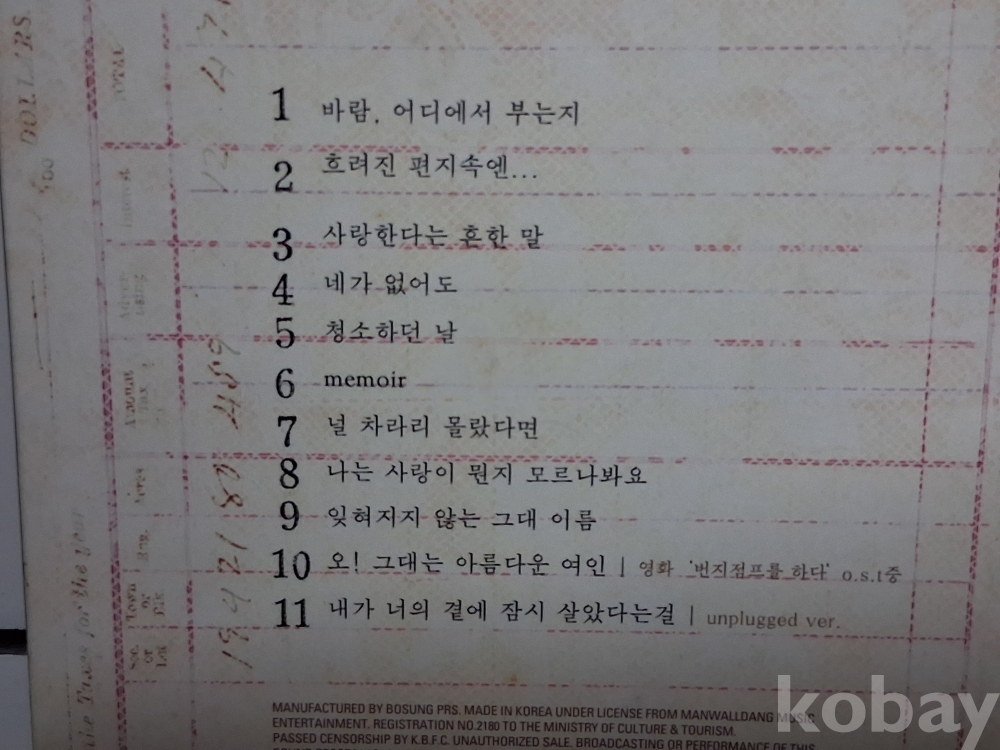 DOLL'RS.
TOTAL
1 바람, 어디에서 부는지
2 흐려진 편지속엔...
3 사랑한다는 흔한 말
4 네가 없어도
5 청소하던 날
6 memoir
7 널 차라리 몰랐다면
8 나는 사랑이 뭔지 모르나봐요
9 잊혀지지 않는 그대 이름
10 오! 그대는 아름다운 여인 | 영화 '번지점프를 하다' o.s.t중
11 내가 너의 곁에 잠시 살았다는걸 | unplugged ver.
Taxes for the year
MANUFACTURED BY BOSUNG PRS. MADE IN KOREA UNDER LICENSE FROM MANWALLDANG MUSIC
ENTERTAINMENT. REGISTRATION NO.2180 TO THE MINISTRY OF CULTURE & TOURISM.
PASSED CENSORSHIP BY K.B.F.C. UNAUTHORIZED SALE. BROADCASTING OR PERFORMANCE OF THIS
kobay